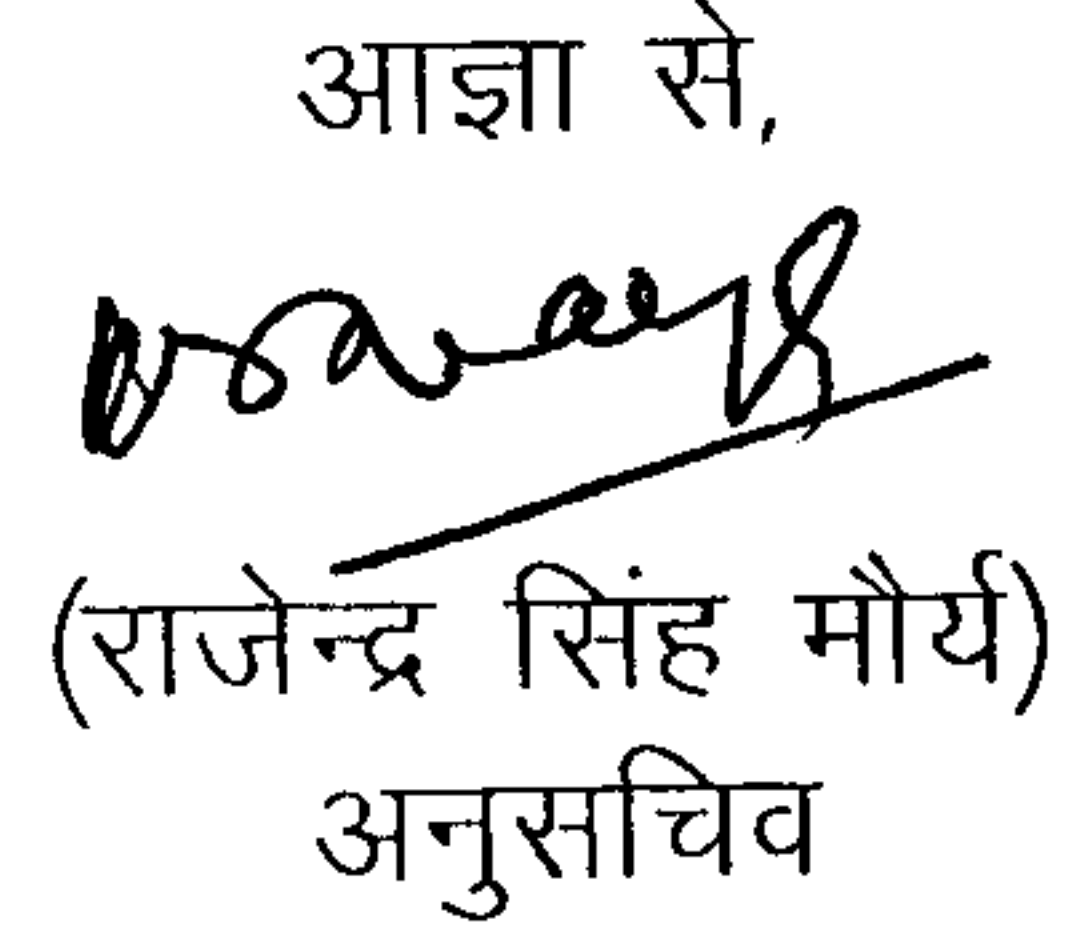 आज्ञा से,
(राजेन्द्र सिंह मौर्य)
अनुसचिव